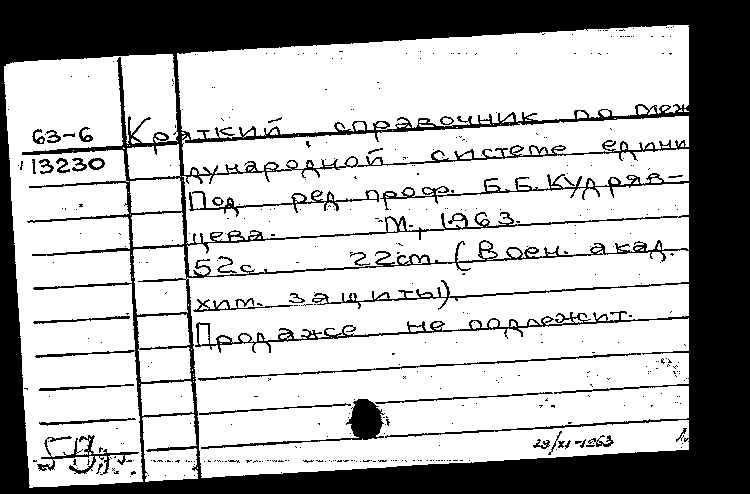 63-6 Краткий справочник по меж
13230 дународной системе едини
Под ред проф. Б.Б. Кудряв-
цева. М., 1963.
52с. 22см. (Воен. акад.
хим. защиты).
Продаже не подлежит.
29/XI-1963